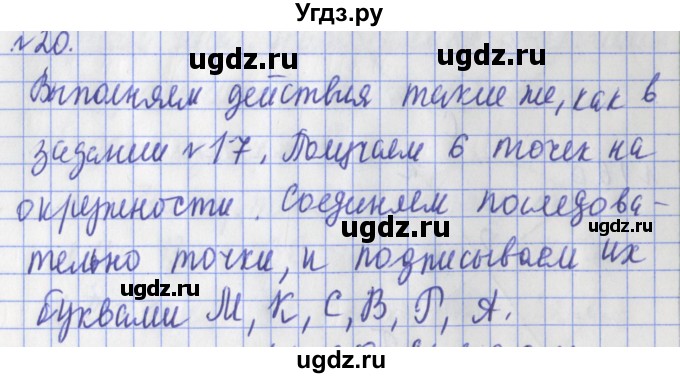 Угдз.ру
№20.
ugdz.ru ugdz.ru
Выполняем действия такие же, как в
задании №17. Получаем 6 точек на
ugdz.ru ugdz.ru
окружности. Соединяем последова-
ugdz.ru
тельно точки, и подписываем их
ugdz.ru ugdz.ru
буквами М, К, С, В, Р, А.
ugdz.ru